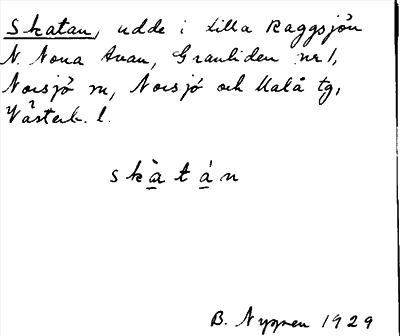 Skatan, udde i Lilla Raggsjön
N. Nona Avan, Granliden nr 1,
Norsjö sn, Norsjö och Malå tg,
Västerb. l.
skàtán
B. Nygren 1929